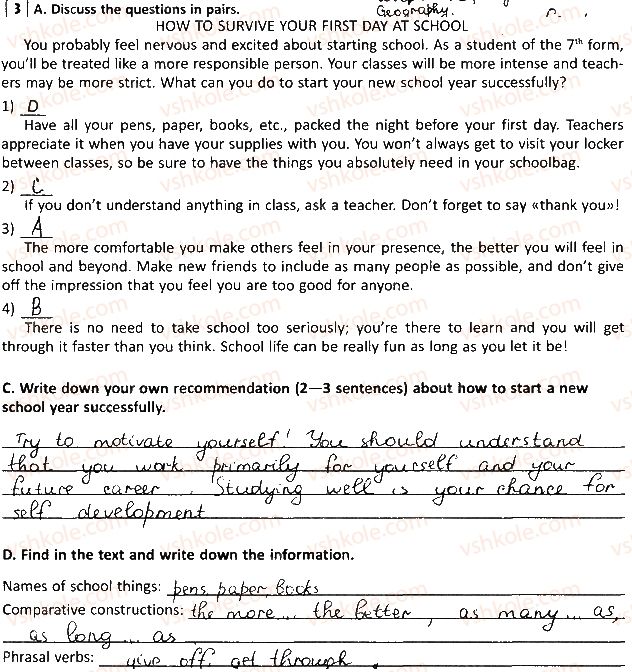 Geography.
3 A. Discuss the questions in pairs.
HOW TO SURVIVE YOUR FIRST DAY AT SCHOOL
You probably feel nervous and excited about starting school. As a student of the 7th form,
you'll be treated like a more responsible person. Your classes will be more intense and teach-
ers may be more strict. What can you do to start your new school year successfully?
1) D
Have all your pens, paper, books, etc., packed the night before your first day. Teachers
appreciate it when you have your supplies with you. You won't always get to visit your locker
between classes, so be sure to have the things you absolutely need in your schoolbag.
2) C
If you don't understand anything in class, ask a teacher. Don't forget to say «thank you»!
3) A
The more comfortable you make others feel in your presence, the better you will feel in
school and beyond. Make new friends to include as many people as possible, and don't give
off the impression that you feel you are too good for anyone.
4) B
There is no need to take school too seriously; you're there to learn and you will get
through it faster than you think. School life can be really fun as long as you let it be!
C. Write down your own recommendation (2—3 sentences) about how to start a new
school year successfully.
Try to motivate yourself! You should understand
that you work primarily for yourself and your
future career. Studying well is your chance for
self development
D. Find in the text and write down the information.
Names of school things: pens, paper, books
Comparative constructions: the more... the better, as many... as,
as long ... as
Phrasal verbs: give off, get through.